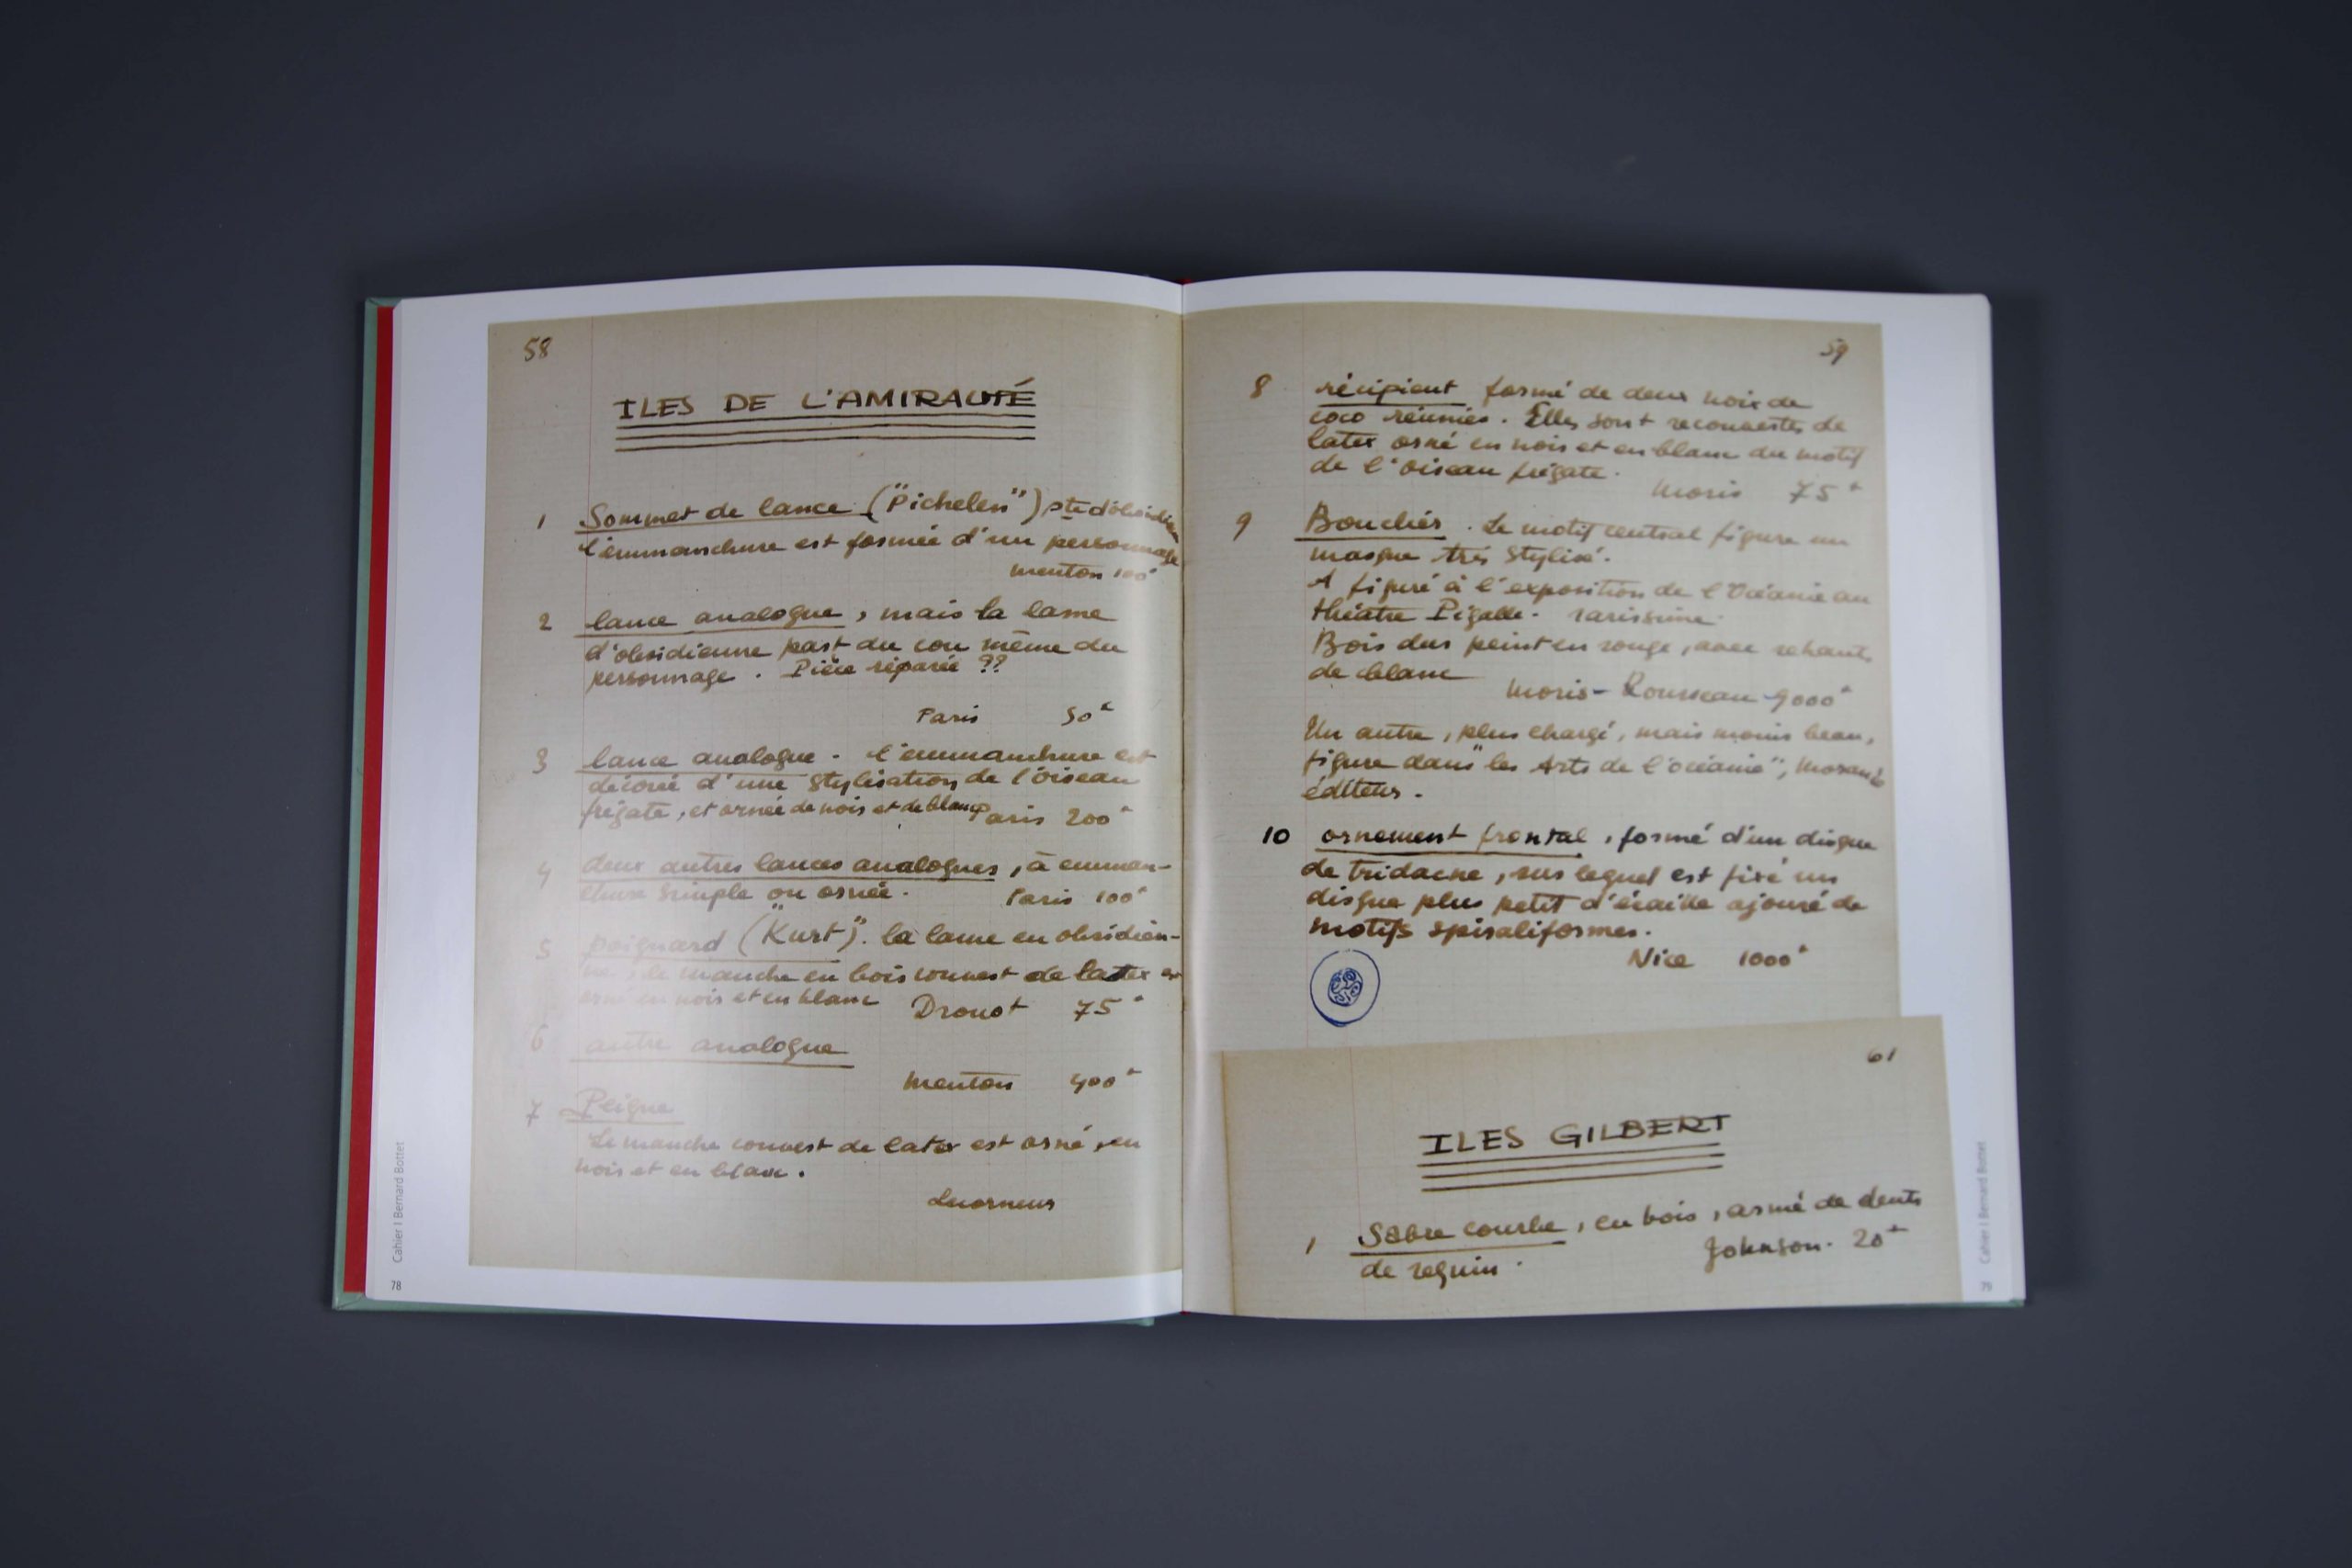 58
ILES DE L'AMIRAUTÉ
1 Sommet de lance ("Pichelen") pte d'obsidienne
l'emmanchure est formée d'un personnage
Menton 100
2 lance analogue, mais la lame
d'obsidienne part du cou même du
personnage. Pièce réparée ??
Paris 50
3 lance analogue. l'emmanchure est
décorée d'une stylisation de l'oiseau
frégate, et ornée de noir et de blanc Paris 200
4 deux autres lances analogues, à emman-
chure simple ou ornée. Paris 100
5 poignard ("Kurt"). la lame en obsidien-
ne, le manche en bois couvert de latex
orné en noir et en blanc Drouot 75
6 autre analogue
Menton 400
7 Peigne
Le manche couvert de latex est orné, en
noir et en blanc.
Lecorneur
Cahier I Bernard Bottet
78
59
8 récipient formé de deux noix de
coco réunies. Elles sont recouvertes de
latex orné en noir et en blanc du motif
de l'oiseau frégate.
Moris 75
9 Bouclier. Le motif central figure un
masque très stylisé.
A figuré à l'exposition de l'Océanie au
théâtre Pigalle. rarissime.
Bois dur peint en rouge, avec rehauts
de blanc
Moris-Rousseau 9000
Un autre, plus chargé, mais moins beau,
figure dans "les Arts de l'océanie",
éditeur.
10 ornement frontal, formé d'un disque
de tridacne, sur lequel est fixé un
disque plus petit d'écaille ajouré de
motifs spiraliformes.
Nice 1000
61
ILES GILBERT
1 Sabre courbe, en bois, armé de dents
de requin. Johnson. 20
Cahier I Bernard Bottet